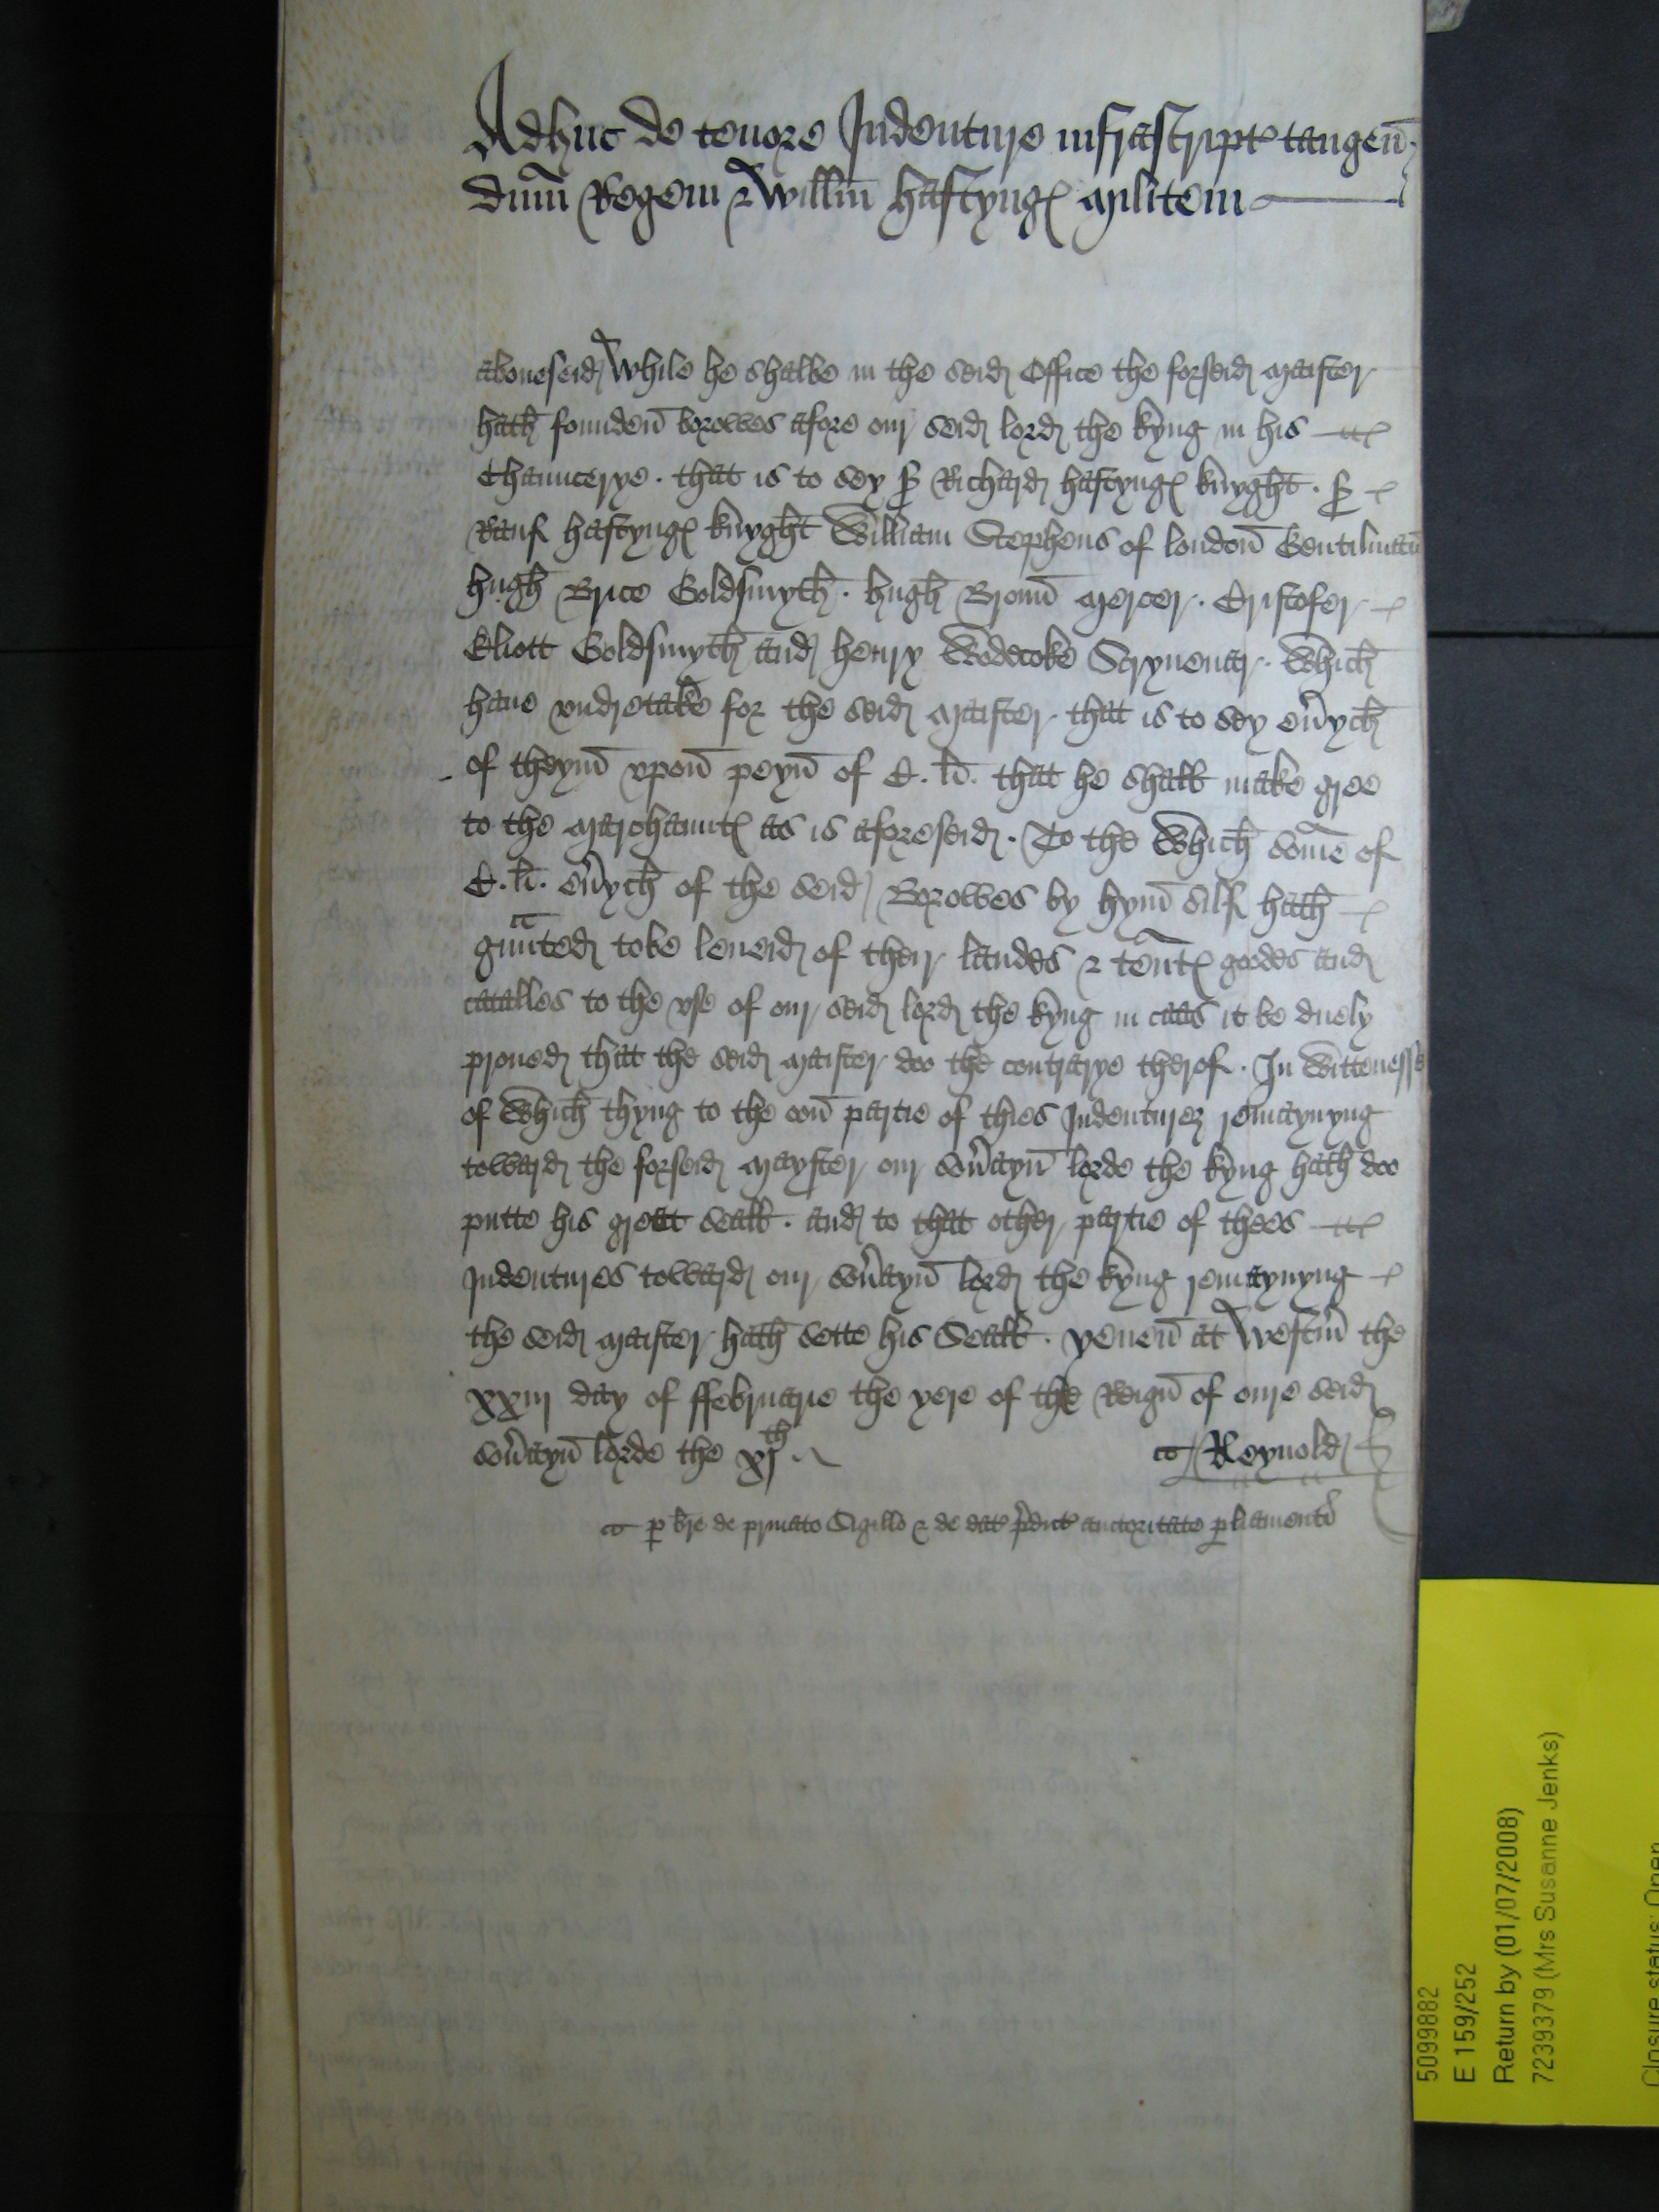 Adhuc de tenore Indenture infrascript tangen
dnm Regem & Willm Hastynges militem
aboueseid While he shalbe in the seid Office the forseid Maister
hath founden borowes afore our seid lord the kyng in his
Chauncerye . that is to sey Sr Richard Hastynges knyght . Sr
Rauf Hastynges knyght William Stephens of london Gentilman
hugh Brice Goldsmyth . hugh Broun Mercer . Cristofer
Eliott Goldsmyth and henry Wodecoke Scryuener . Which
haue vndretake for the seid Maister that is to sey eůych
of theym vpon peyn of C . li . that he shall make gree
to the Marchauntes as is aforeseid . To the Which some of
C . li . eůych of the seid Borowes by hym silf hath
graunted tobe leueid of their landes & tentes goodes and
catalles to the vse of our seid lord the kyng in caas it be duely
proued that the seid Maister doo the contrarye therof . In Wittenesse
of Which thyng to the oon partie of thies Indenturez remaynyng
toward the forseid Mayster our soůayn lorde the kyng hath doo
putte his great seall . and to that other partie of thees
Indentures toward our soůayn lord the kyng remaynyng
the seid Maister hath sette his Seall . yeuen at Westm the
xxiij day of ffebruarie the yere of the Reign of oure seid
soůayn lorde the xj th . Reynold
p bre de priuato Sigillo & de dat pdict auctoritate pliamenti
5099882
E 159/252
Return by (01/07/2008)
7239379 (Mrs Susanne Jenks)
Closure status: Open